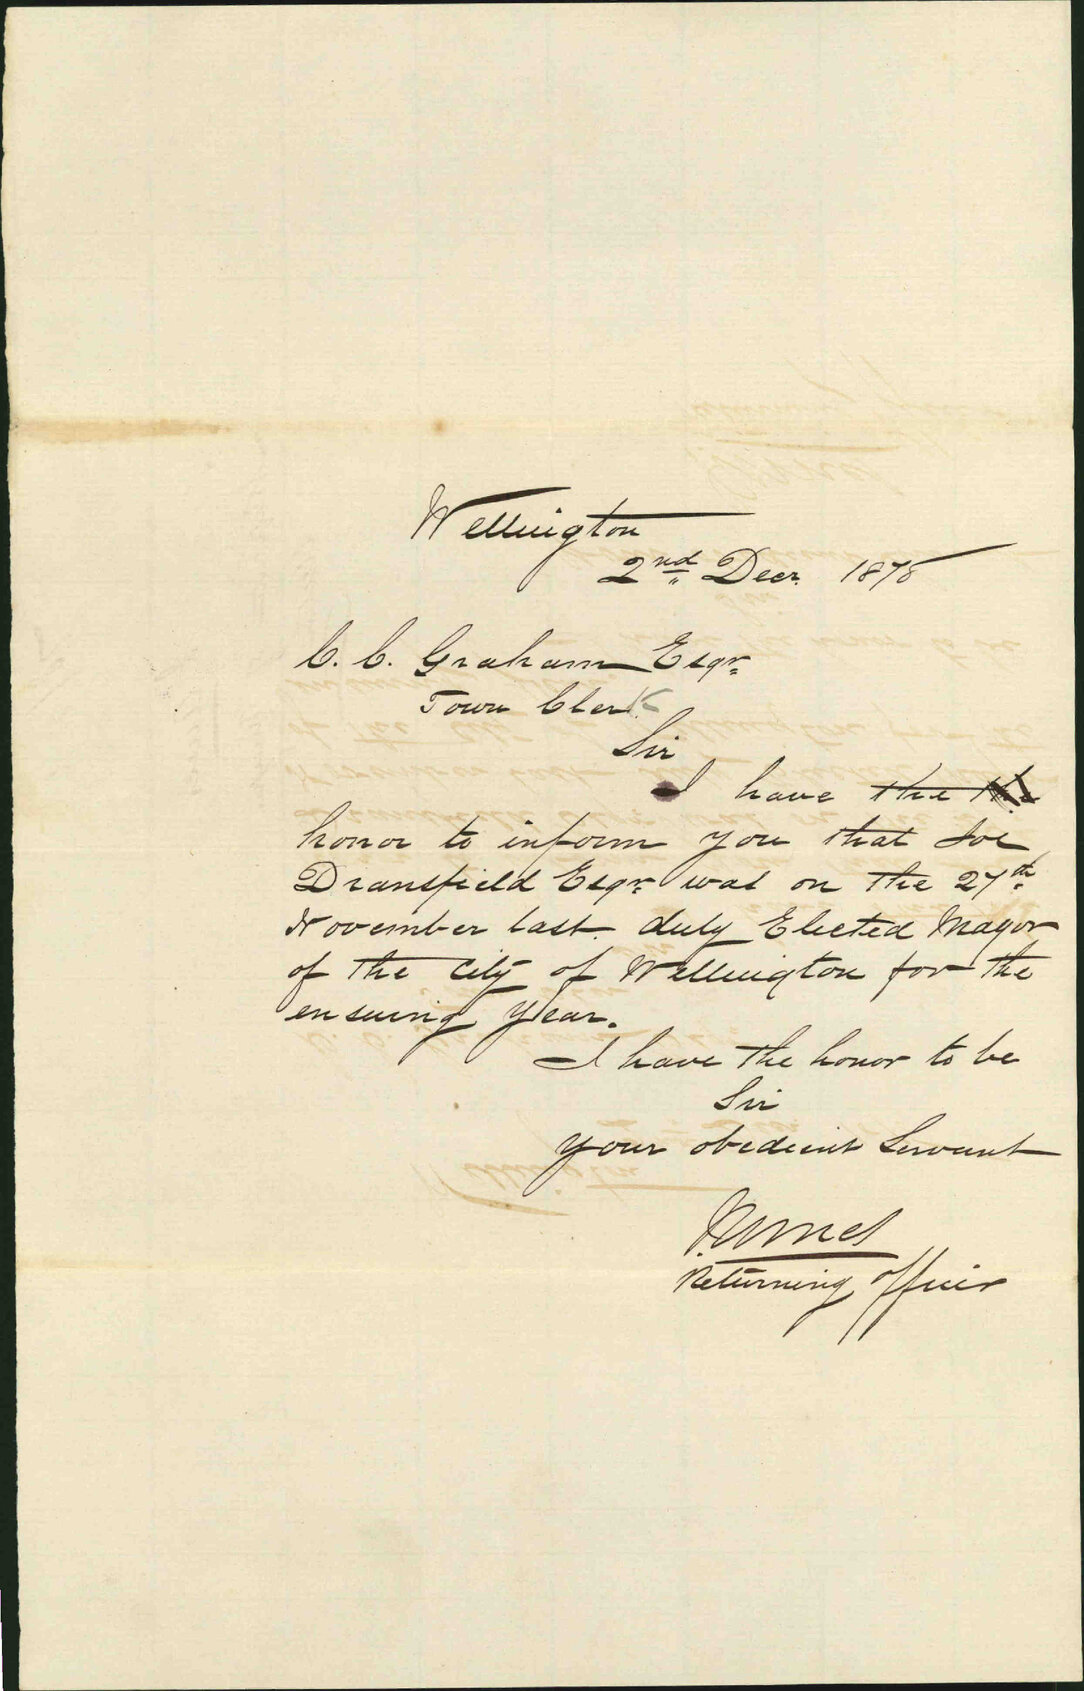 Wellington
2nd Decr. 1878
C. C. Graham Esqr.
Town Clerk
Sir
I have the the
honor to inform you that Joe
Dransfield Esqr. was on the 27th
November last duly Elected Mayor
of the City of Wellington for the
ensuing year.
I have the honor to be
Sir
your obedient Servant
Returning Officer